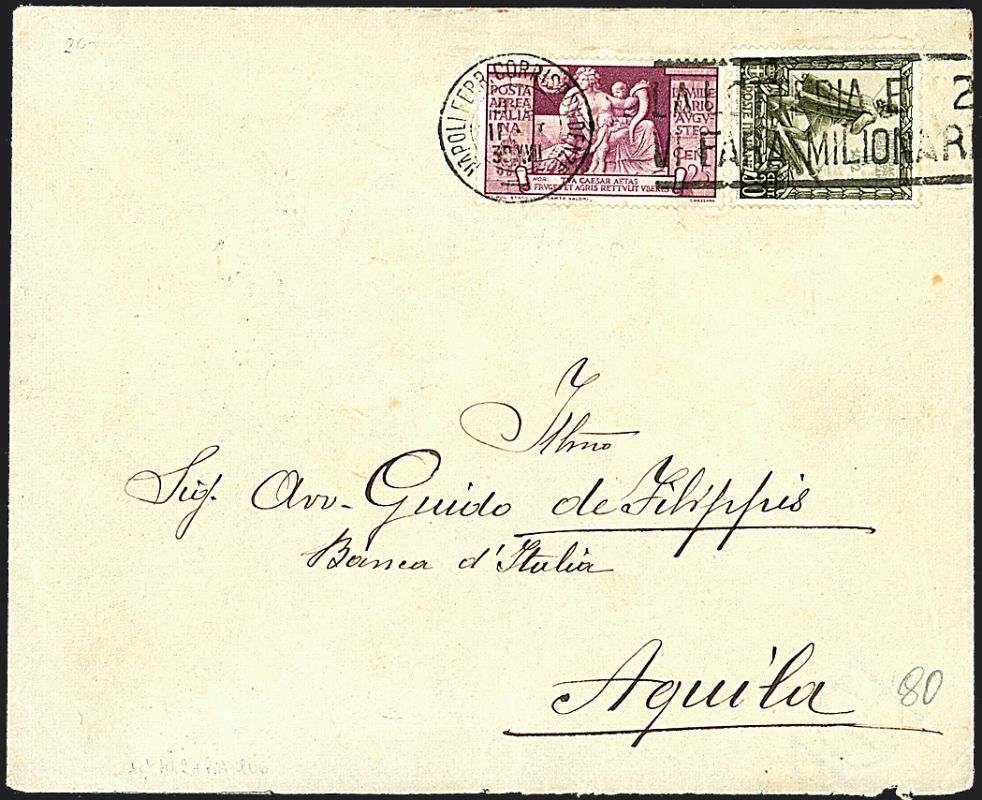 20-
NAPOLI FERR. CORRISPONDENZE
POSTA
AEREA
ITALIA
NA
BIMILLE
NARIO
AVGV
STEO
CEN
25
HOR.
TVA CAESAR AETAS
FRVGES ET AGRIS RETTVLIT VBERES
CARTE VALORI
MEZZANA
POSTE ITALIANE
VI FARÀ MILIONARI
Illmo
Sig. Avv. Guido de Filippis
Banca d'Italia
Aquila
80